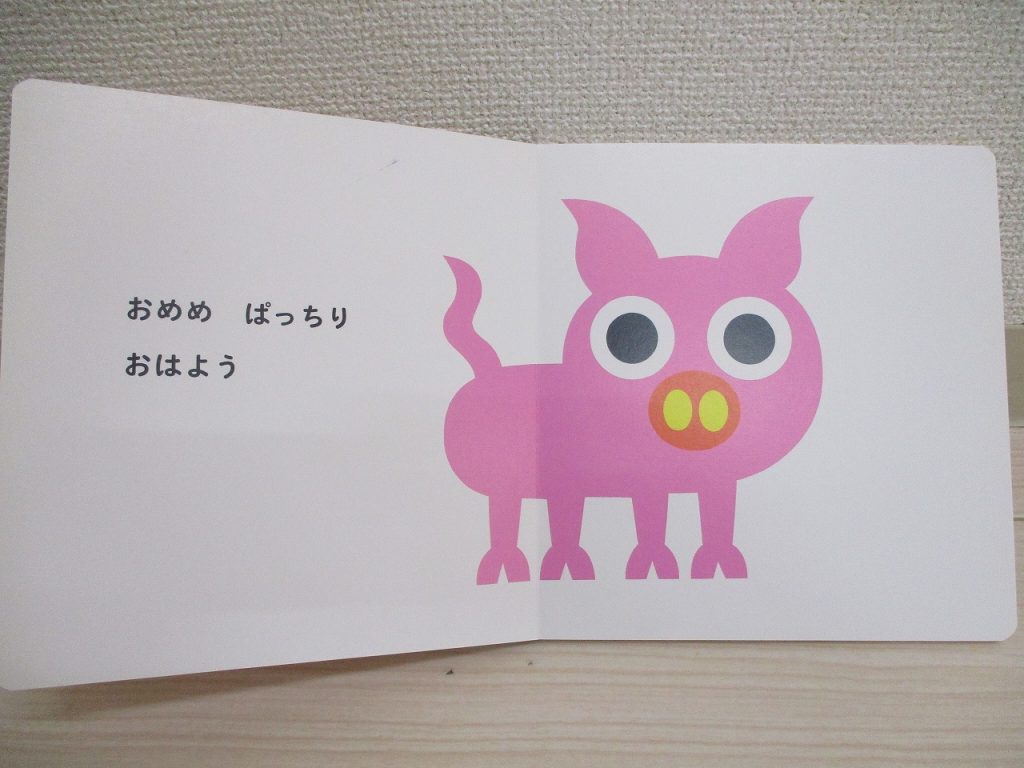 おめめ　ぱっちり
おはよう